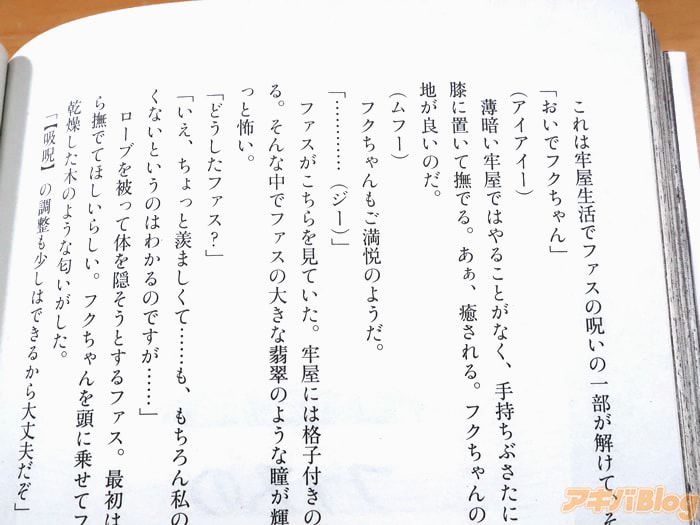 これは牢屋生活でファスの呪いの一部が解けて、そ
「おいでフクちゃん」
（アイアイー）
薄暗い牢屋ではやることがなく、手持ちぶさたに
膝に置いて撫でる。あぁ、癒される。フクちゃんの
地が良いのだ。
（ムフー）
フクちゃんもご満悦のようだ。
「…………（ジー）」
ファスがこちらを見ていた。牢屋には格子付きの
る。そんな中でファスの大きな翡翠のような瞳が輝
っと怖い。
「どうしたファス？」
「いえ、ちょっと羨ましくて……も、もちろん私の
くないというのはわかるのですが……」
ローブを被って体を隠そうとするファス。最初は
ら撫でてほしいらしい。フクちゃんを頭に乗せてフ
乾燥した木のような匂いがした。
「【吸呪】の調整も少しはできるから大丈夫だぞ」
アキバBlog